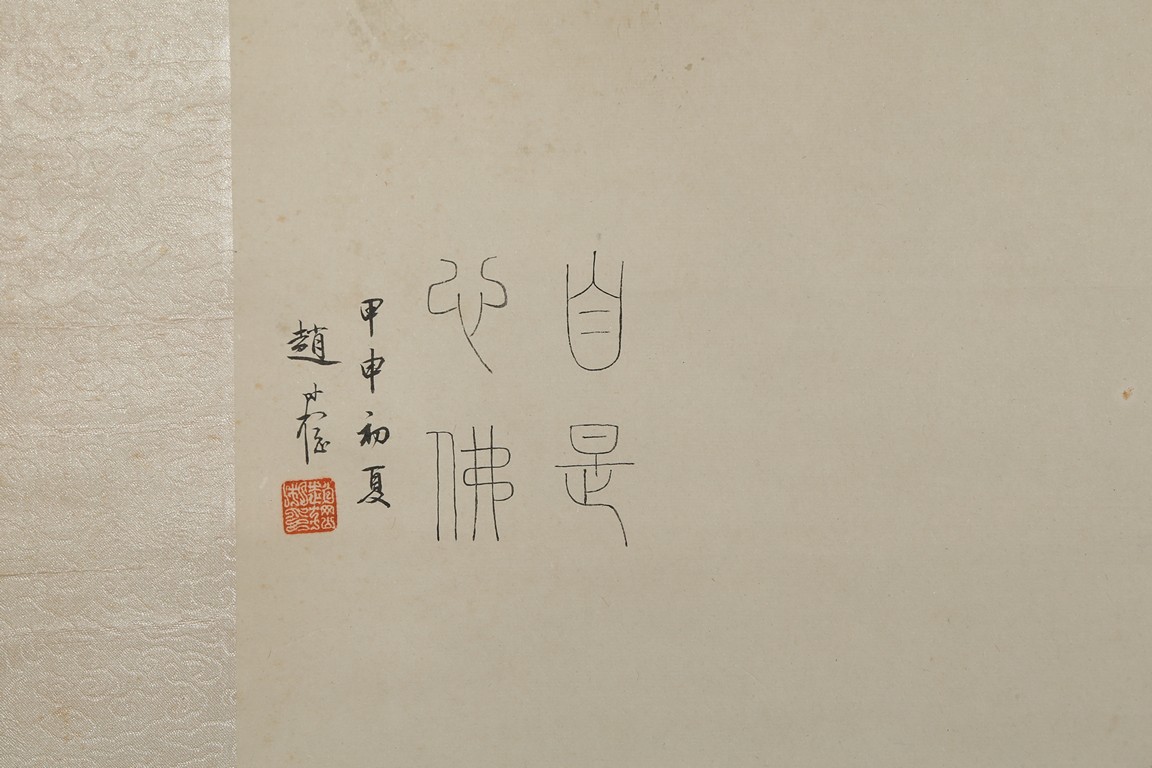 自心
是佛
甲申初夏
趙